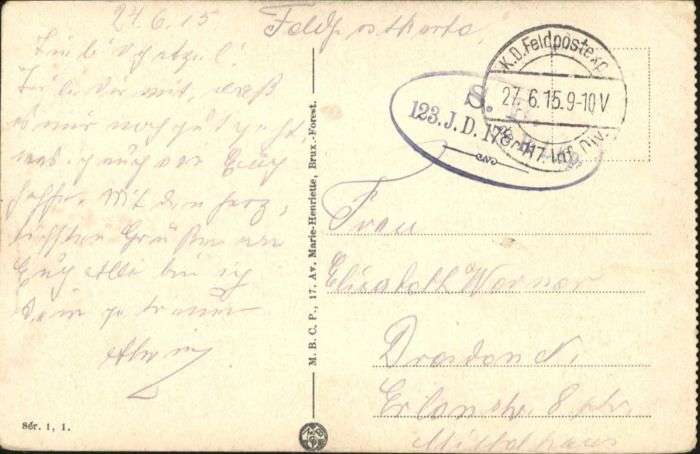 24.6.15
Feldpostkarte
Lieber Schatzel!
Teile dir mit, daß
es mir noch gut geht,
was ich auch von Euch
hoffe. Mit den herz-
lichsten Grüßen an
Euch Alle bin ich
Dein getreuer
Alwin
Sér. 1, 1.
M. B. C. P., 17, Av. Marie-Henriette, Brux.-Forest.
K.D.Feldpostexp.
27.6.15.9-10V
S. B.
123. J. D. 178.
Frau
Elisabeth Werner
Dresden N.
Erlenstr. 8
Mittelhaus